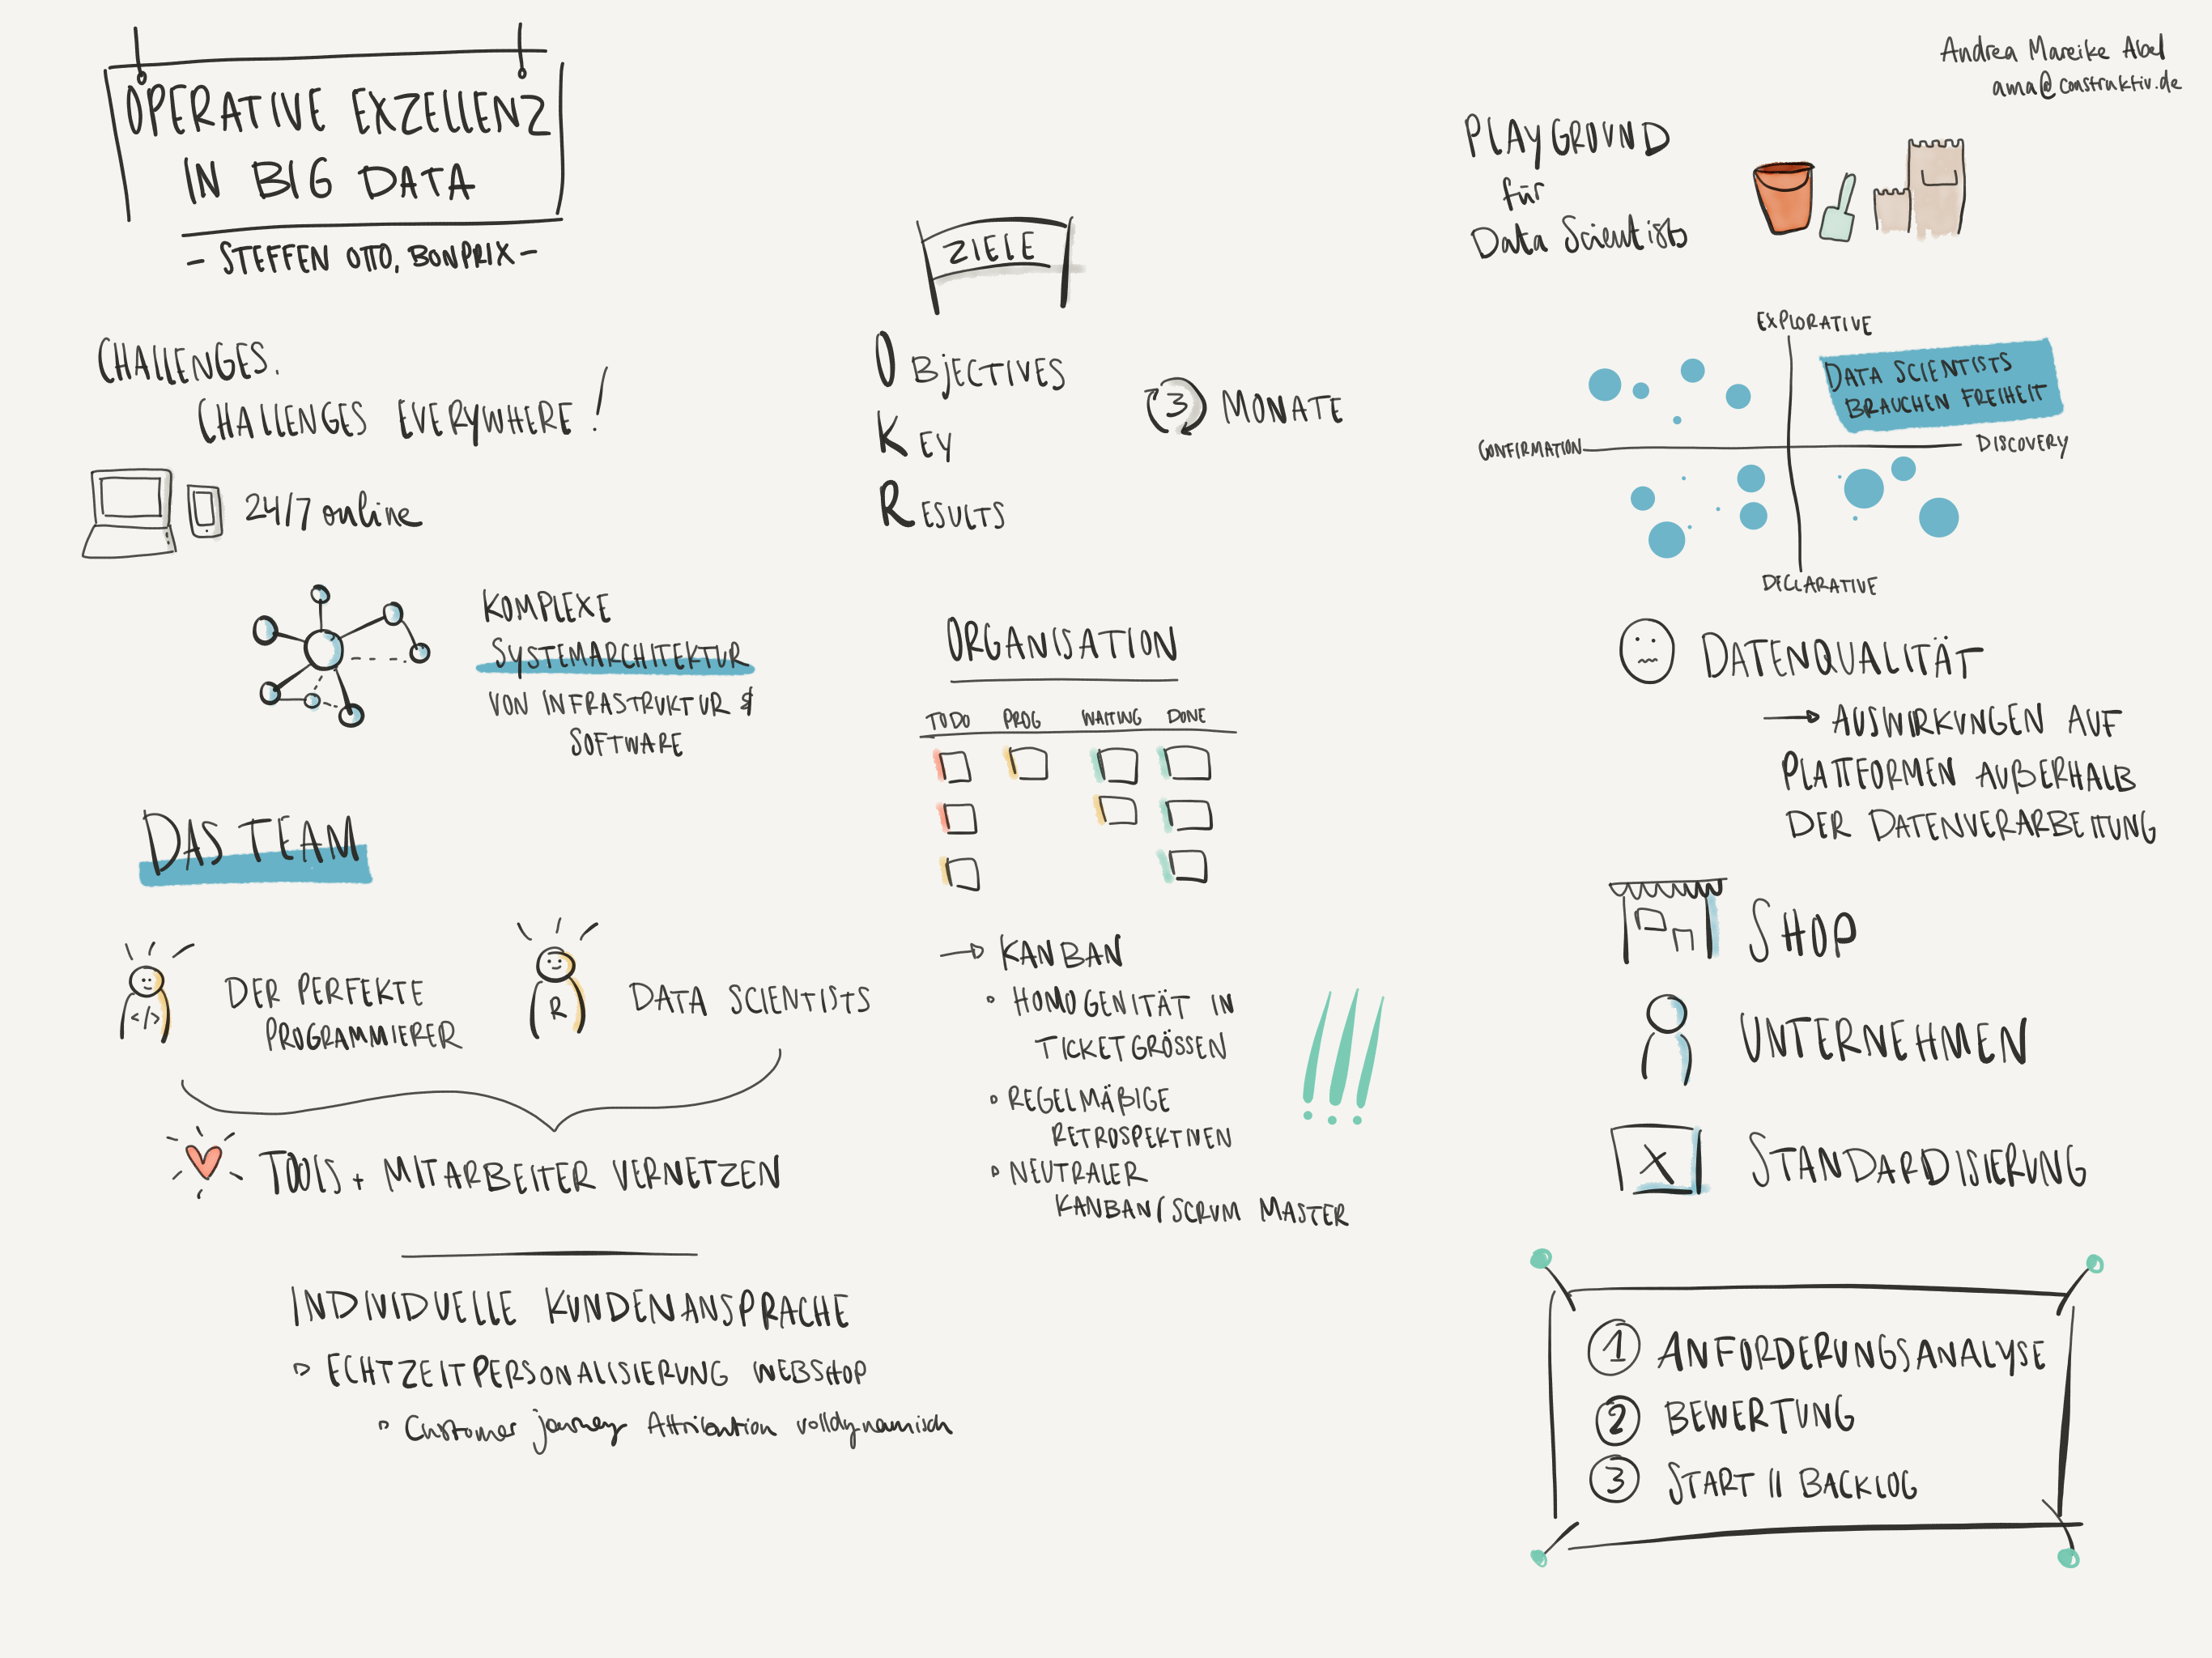 OPERATIVE EXZELLENZ
IN BIG DATA
- STEFFEN OTTO, BONPRIX -
CHALLENGES.
CHALLENGES EVERYWHERE!
24/7 online
KOMPLEXE
SYSTEMARCHITEKTUR
VON INFRASTRUKTUR &
SOFTWARE
DAS TEAM
</>
DER PERFEKTE
PROGRAMMIERER
R
DATA SCIENTISTS
TOOLS + MITARBEITER VERNETZEN
INDIVIDUELLE KUNDENANSPRACHE
ECHTZEITPERSONALISIERUNG WEBSHOP
Customer journey Attribution volldynamisch
ZIELE
OBJECTIVES
KEY
RESULTS
3 MONATE
ORGANISATION
TO DO PROG WAITING DONE
→ KANBAN
HOMOGENITÄT IN
TICKETGRÖSSEN
REGELMÄßIGE
RETROSPEKTIVEN
NEUTRALER
KANBAN/SCRUM MASTER
!!!
Andrea Mareike Abel
ama@construktiv.de
PLAYGROUND
für
Data Scientists
EXPLORATIVE
DATA SCIENTISTS
BRAUCHEN FREIHEIT
CONFIRMATION
DISCOVERY
DECLARATIVE
DATENQUALITÄT
→ AUSWIRKUNGEN AUF
PLATTFORMEN AUßERHALB
DER DATENVERARBEITUNG
SHOP
UNTERNEHMEN
X STANDARDISIERUNG
1 ANFORDERUNGSANALYSE
2 BEWERTUNG
3 START || BACKLOG